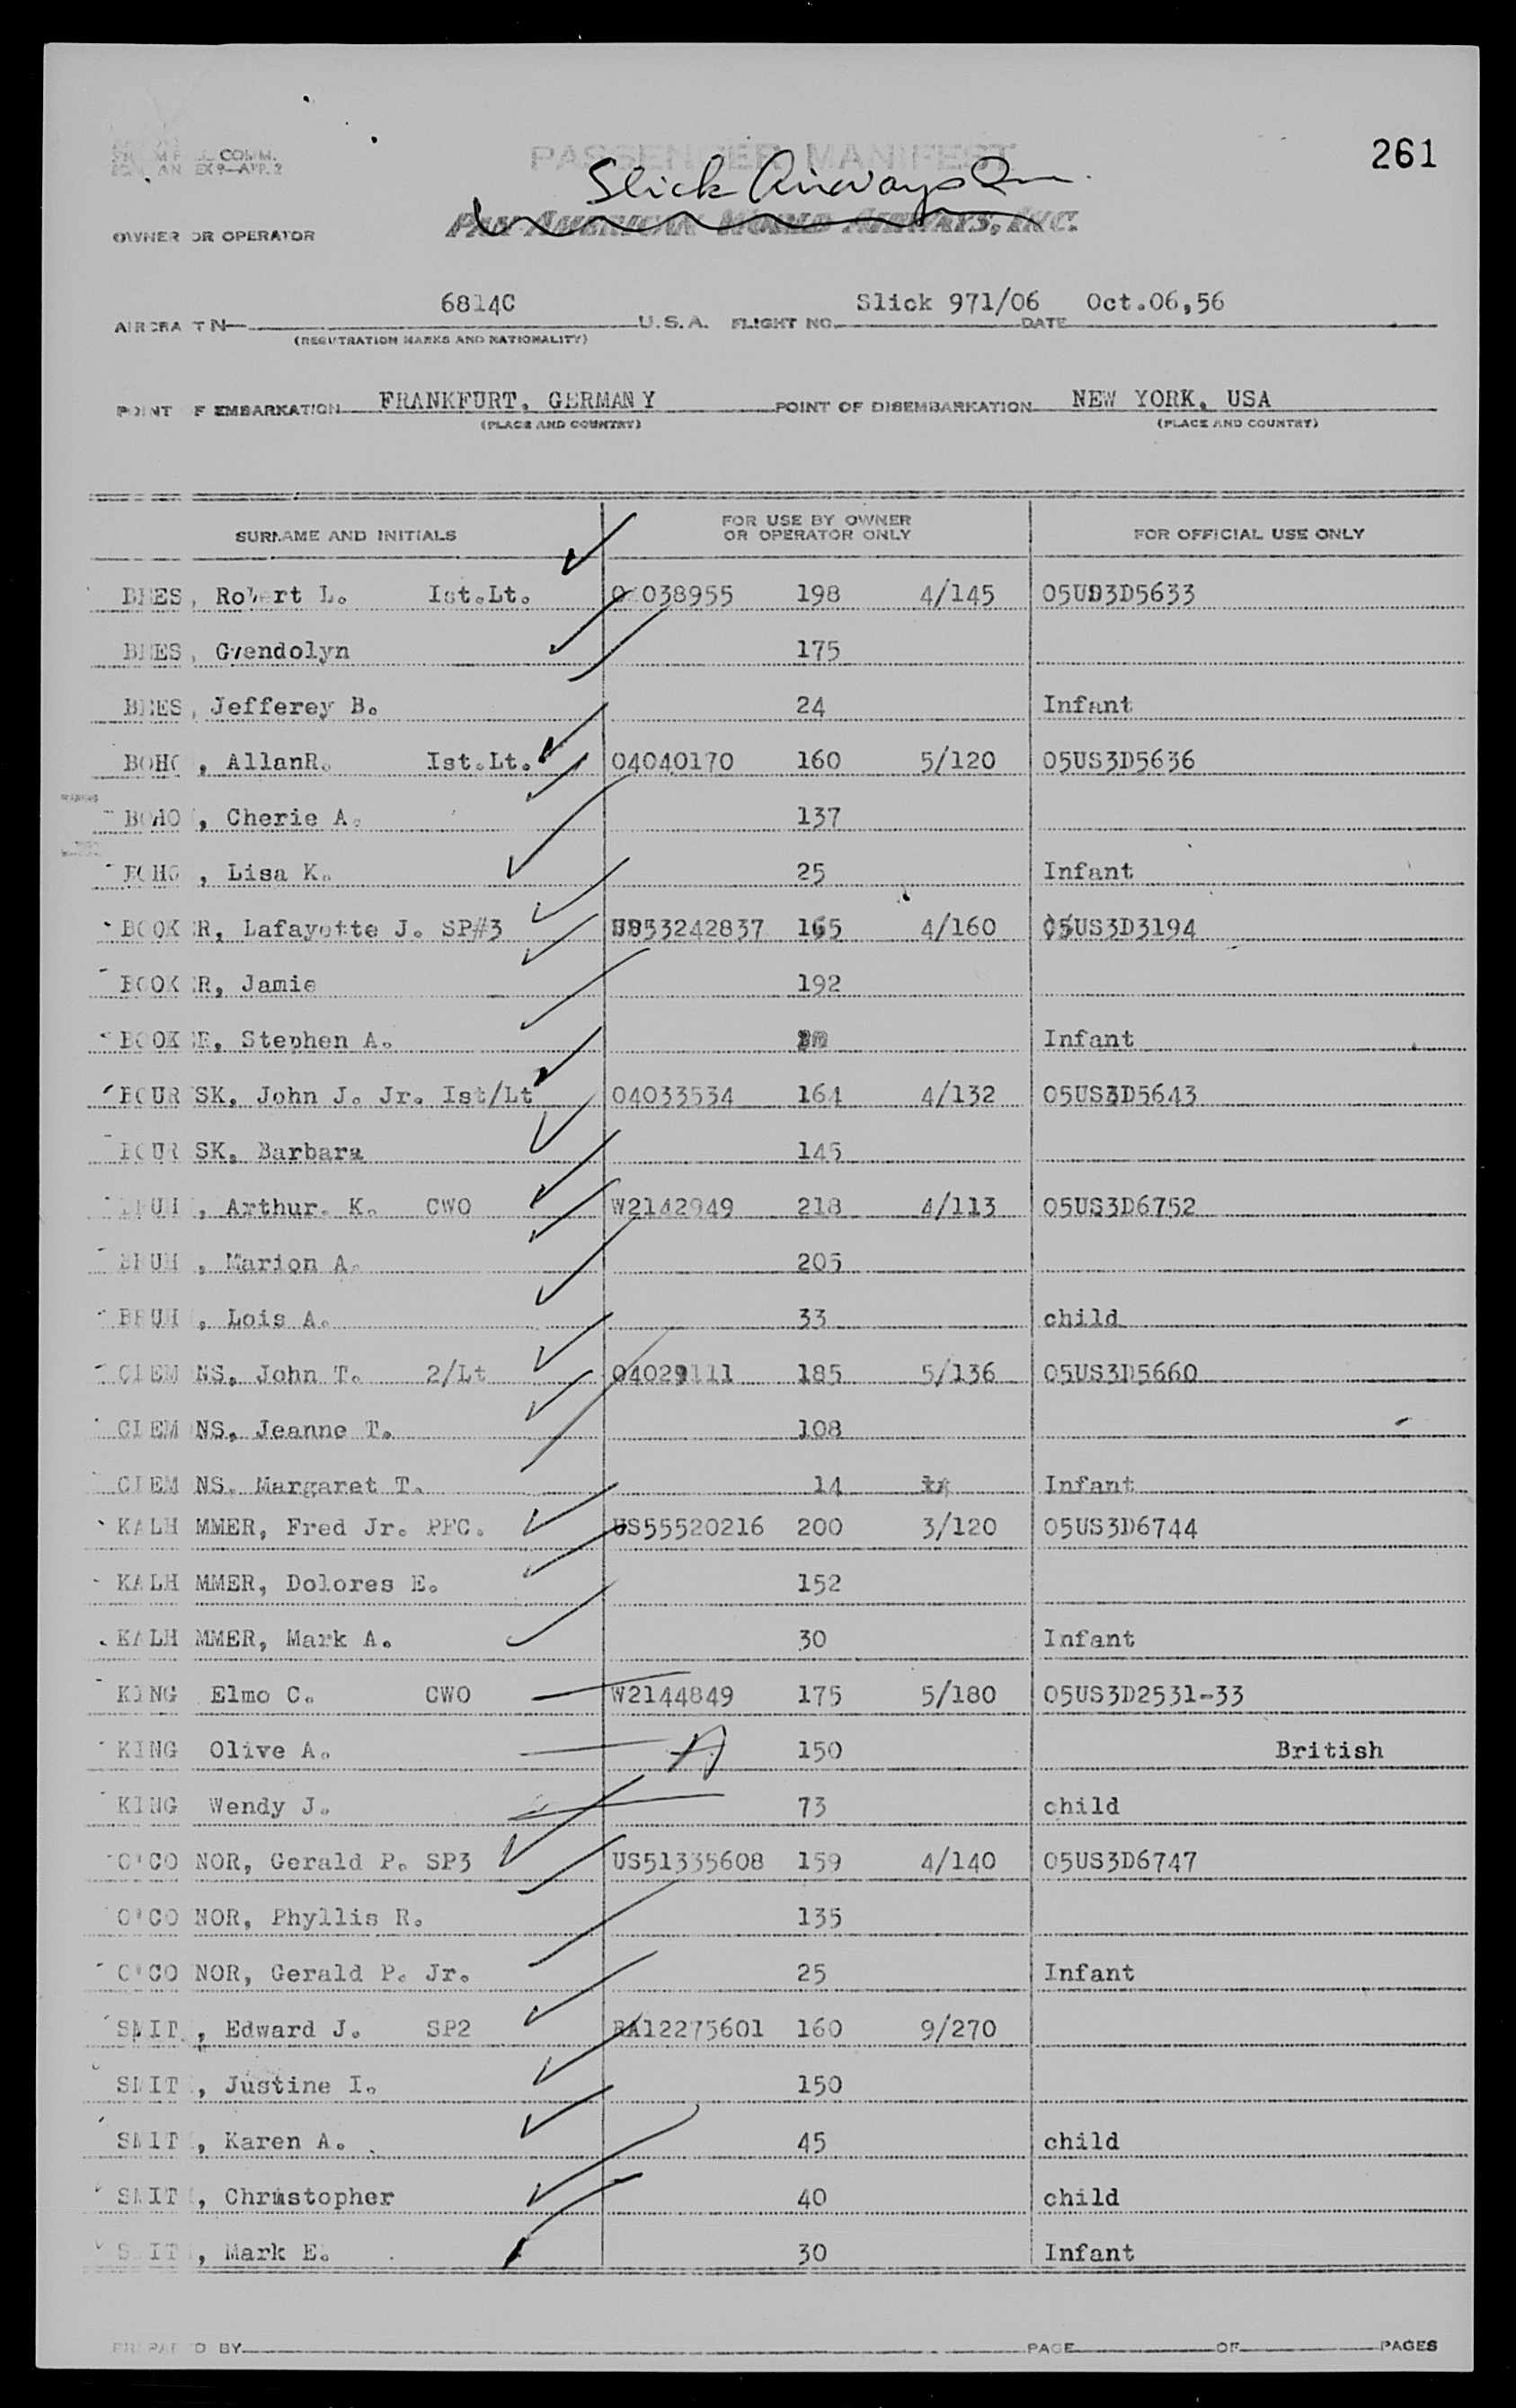 261
PASSENGER MANIFEST
Slick Airways
OWNER OR OPERATOR PAN AMERICAN WORLD AIRWAYS, INC.
AIRCRAFT N 6814C U.S.A. FLIGHT NO. Slick 971/06 DATE Oct.06,56
(REGISTRATION MARKS AND NATIONALITY)
POINT OF EMBARKATION FRANKFURT, GERMANY POINT OF DISEMBARKATION NEW YORK, USA
(PLACE AND COUNTRY) (PLACE AND COUNTRY)
SURNAME AND INITIALS FOR USE BY OWNER OR OPERATOR ONLY FOR OFFICIAL USE ONLY
Robert L. Ist.Lt. 198 4/145
Gwendolyn 175
Jefferey B. 24 Infant
AllanR. Ist.Lt. 04040170 160 5/120 05US3D5636
Cherie A. 137
Lisa K. 25 Infant
BOOKER, Lafayette J. SP#3 165 4/160 05US3D3194
BOOKER, Jamie 192
BOOKER, Stephen A. Infant
John J. Jr. Ist/Lt 04033534 164 4/132 05US3D5643
Barbara 145
Arthur. K. CWO W2142949 218 4/113 05US3D6752
Marion A. 205
Lois A. 33 child
CLEMENS, John T. 2/Lt 185 5/136 05US3D5660
CLEMENS, Jeanne T. 108
CLEMENS. Margaret T. 14 Infant
KALHAMMER, Fred Jr. PFC. US55520216 200 3/120 05US3D6744
KALHAMMER, Dolores E. 152
KALHAMMER, Mark A. 30 Infant
KING Elmo C. CWO W2144849 175 5/180 05US3D2531-33
KING Olive A. A 150 British
KING Wendy J. 73 child
O'CONNOR, Gerald P. SP3 US51335608 159 4/140 05US3D6747
O'CONNOR, Phyllis R. 135
O'CONNOR, Gerald P. Jr. 25 Infant
SMITH, Edward J. SP2 RA12275601 160 9/270
SMITH, Justine I. 150
SMITH, Karen A. 45 child
SMITH, Christopher 40 child
SMITH, Mark E. 30 Infant
PREPARED BY PAGE OF PAGES